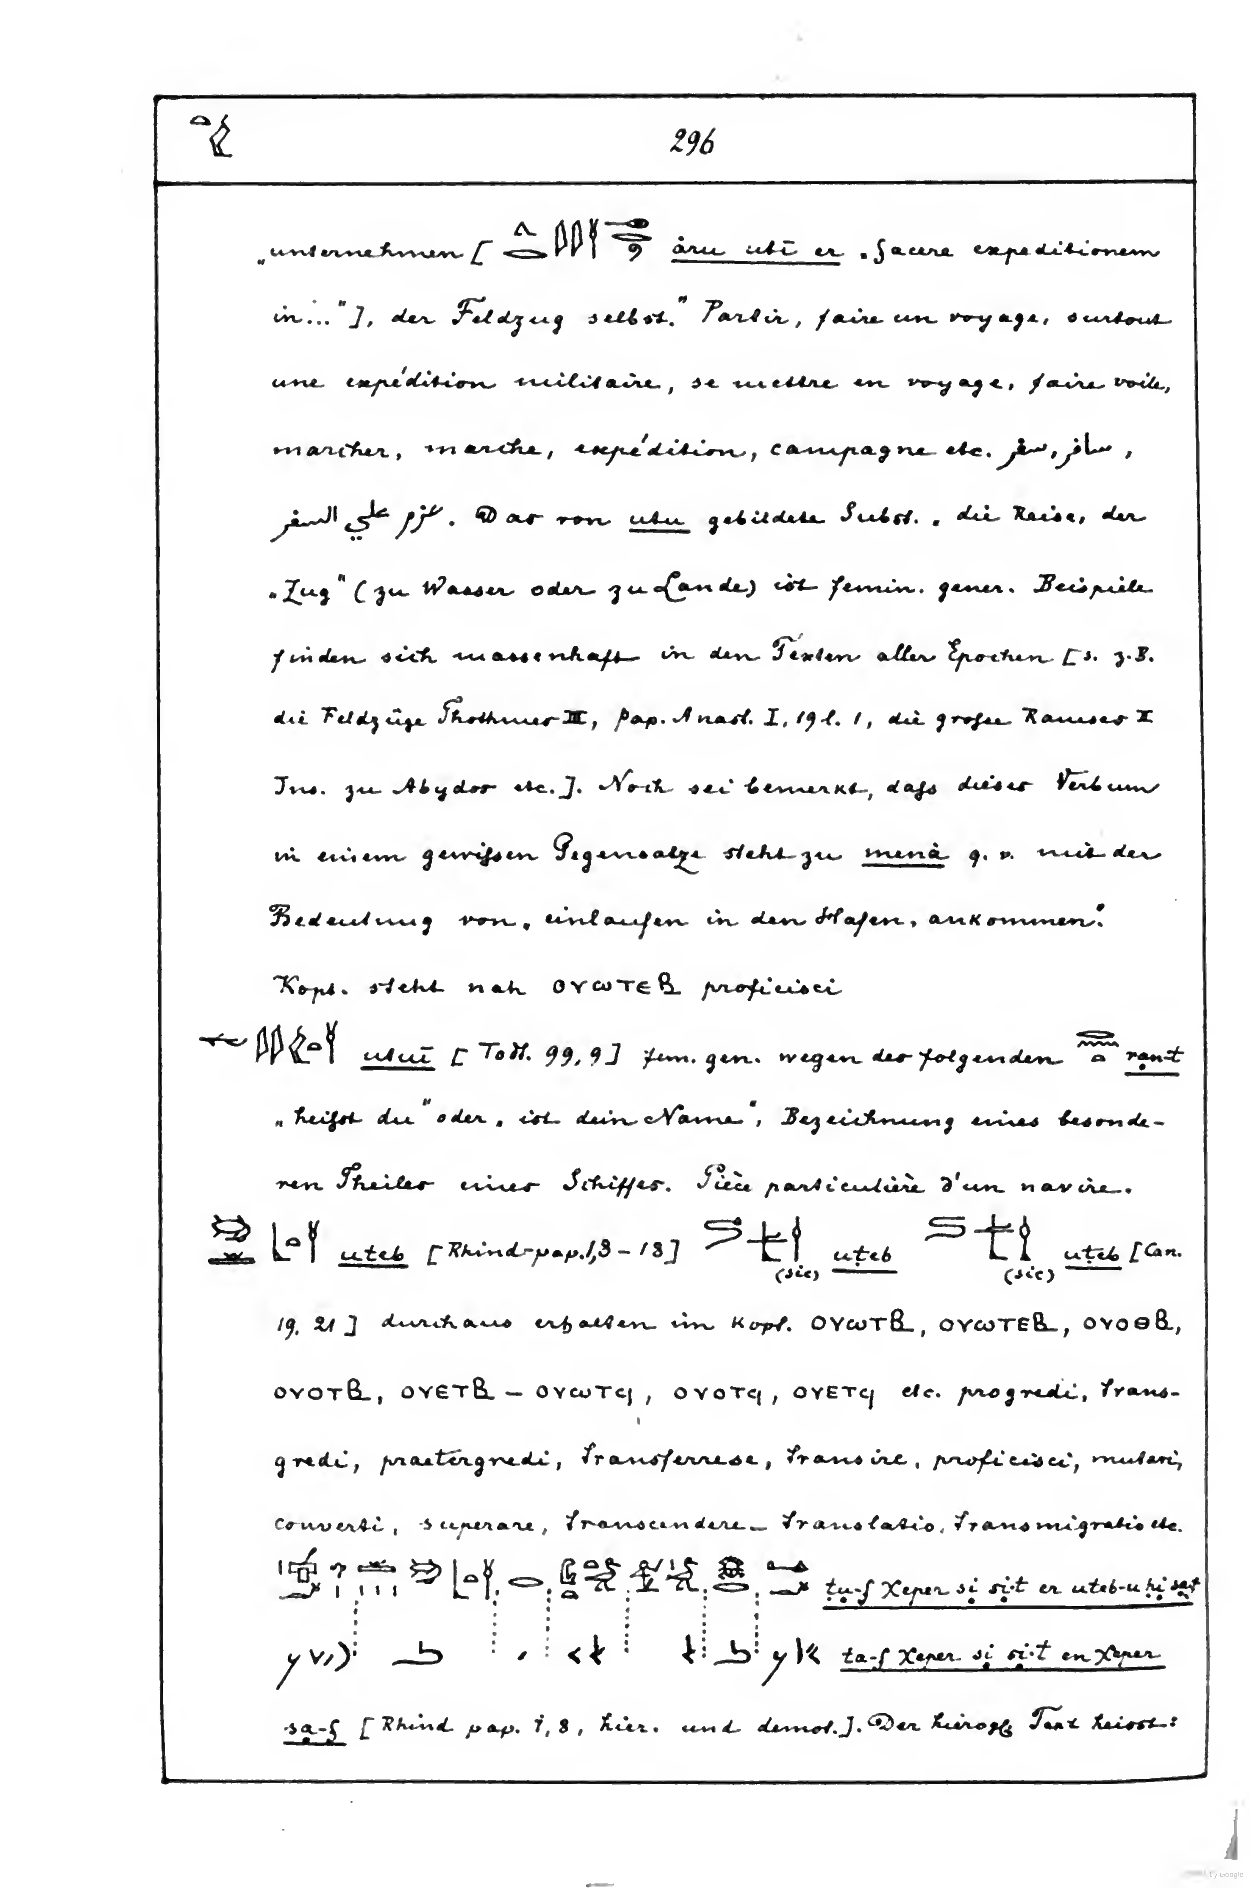 296
„unternehmen [ ȧru utī er „facere expeditionem
in..."], der Feldzug selbst." Partir, faire un voyage, surtout
une expédition militaire, se mettre en voyage, faire voile,
marcher, marche, expédition, campagne etc. سافر, سفر,
عزم علي السفر. Das von utu gebildete Subst. „die Reise, der
„Zug" (zu Wasser oder zu Lande) ist femin. gener. Beispiele
finden sich massenhaft in den Texten aller Epochen [s. z.B.
die Feldzüge Thothmes III, Pap. Anast. I, 19 l. 1, die grosse Ramses II
Ins. zu Abydos etc.]. Noch sei bemerkt, dass dieses Verbum
in einem gewissen Gegensatze steht zu menȧ q. v. mit der
Bedeutung von „einlaufen in den Hafen, ankommen."
Kopt. steht nah ⲟⲩⲱⲧⲉⲃ proficisci
utuī [Todt. 99, 9] fem. gen. wegen des folgenden ran-t
„heisst du" oder „ist dein Name", Bezeichnung eines besonde-
ren Theiles eines Schiffes. Pièce particulière d'un navire.
uteb [Rhind-pap. 1,8 – 18] (sic) uṭeb (sic) uṭeb [Can.
19. 21] durchaus erhalten im Kopt. ⲟⲩⲱⲧⲃ, ⲟⲩⲱⲧⲉⲃ, ⲟⲩⲟⲑⲃ,
ⲟⲩⲟⲧⲃ, ⲟⲩⲉⲧⲃ – ⲟⲩⲱⲧϥ, ⲟⲩⲟⲧϥ, ⲟⲩⲉⲧϥ etc. progredi, trans-
gredi, praetergredi, transferrese, transire, proficisci, mutari,
converti, superare, transcendere – translatio, transmigratio etc.
ṭu-f χeper si si·t er uteb-u ḥi saṭ
ta-f χeper si si·t en χeper
sa-f [Rhind pap. 1, 8, hier. und demot.]. Der hierogl Text heisst: